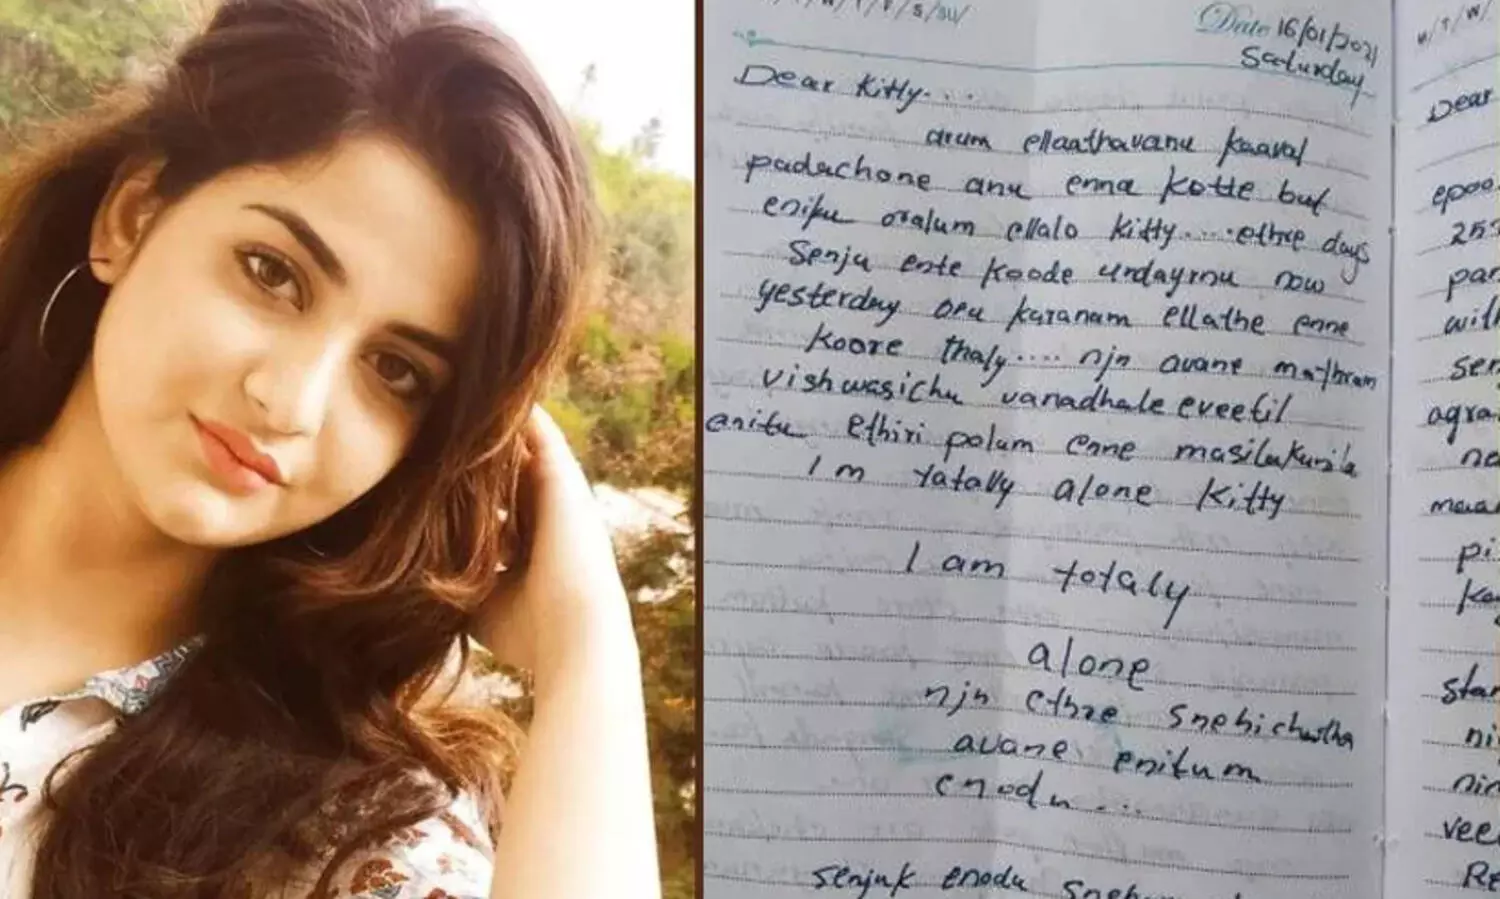 Date 16/01/2021
Saturday
Dear Kitty....
arum ellaathavanu kaaval
padachone anu enna kotte but
eniku oralum ellalo kitty.....ethre days
Senju ente koode undayrnu now
yesterday oru karanam ellathe enne
koore thaly.... njn avane mathram
vishwasichu vanadhale eveetil
enitu ethiri polum enne masilakunila
I m totally alone kitty
I am totaly
alone
njn ethre snehichatha
avane enitum
enodu...
senjuk enodu
Dear
epoo
25
par
with
sen
agra
na
pi
ka
star
ni
nin
vee
Re